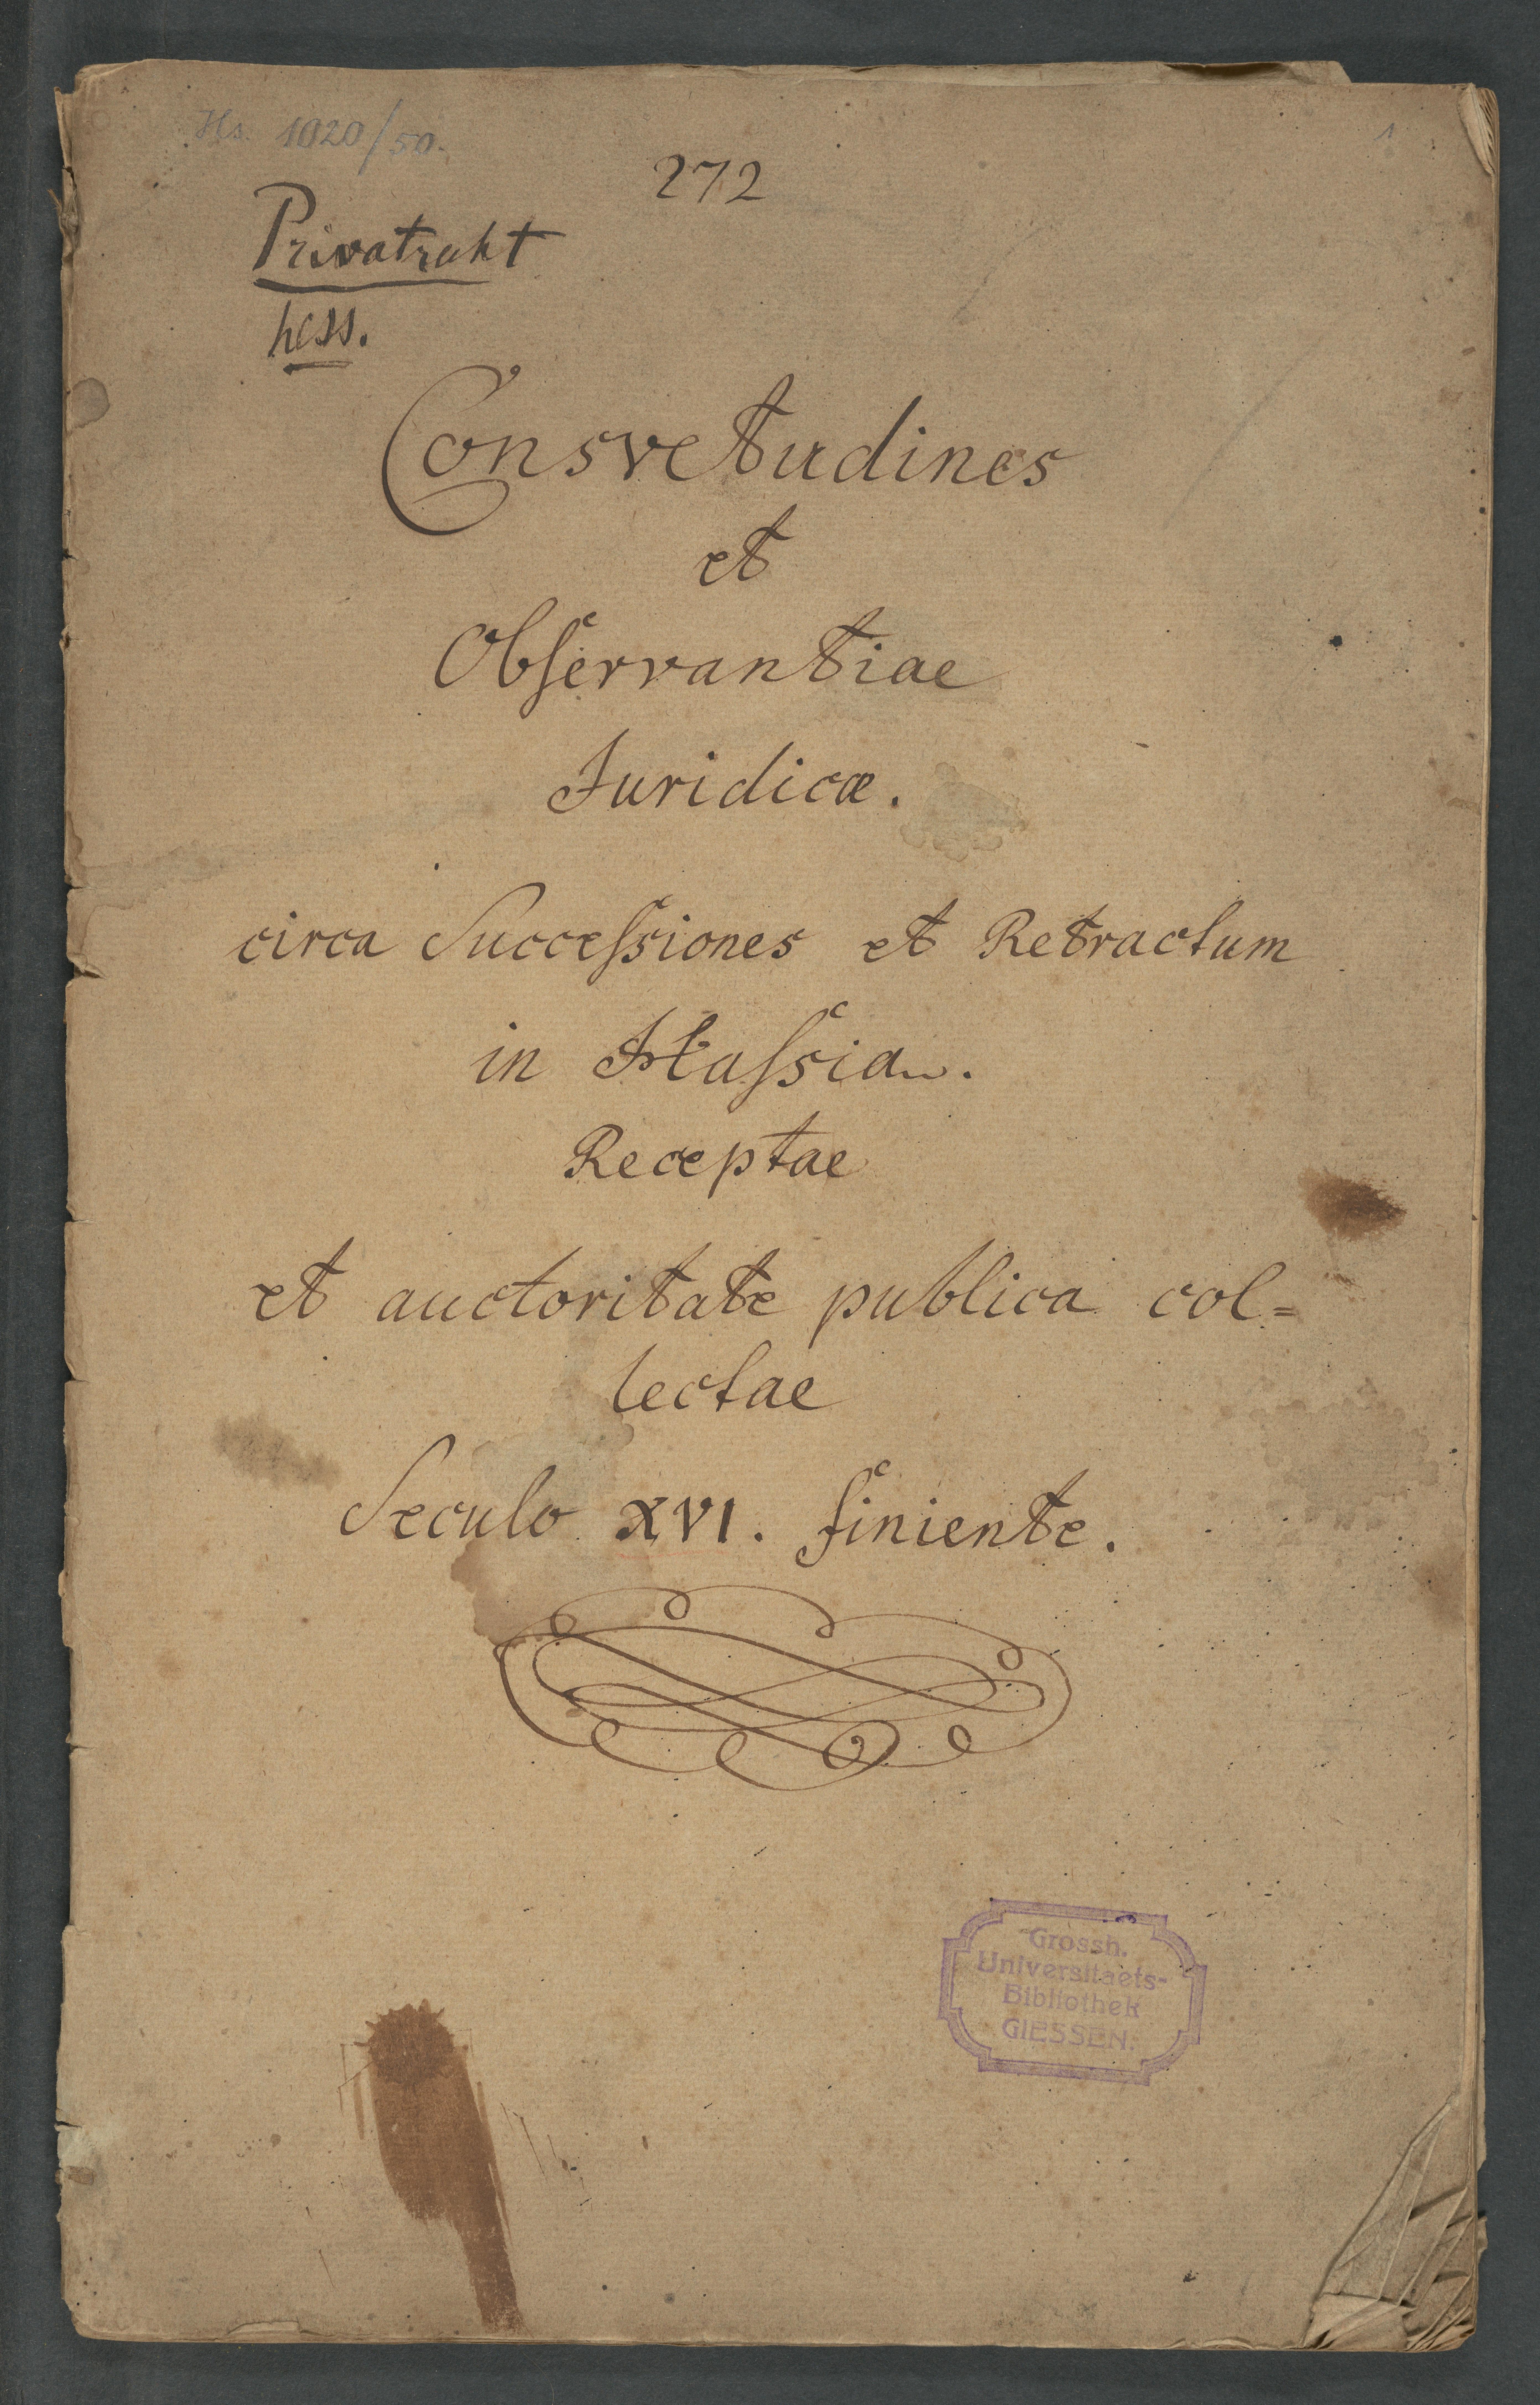 Hs. 1020/50.
1
272
Privatrecht
hess.
Consvetudines
et
Obſervantiae
Juridicæ.
circa Succeſsiones et Retractum
in Haſsia.
Receptae
et auctoritate publica col=
lectae
Seculo XVI. finiente.
Grossh.
Universitaets-
Bibliothek
GIESSEN.